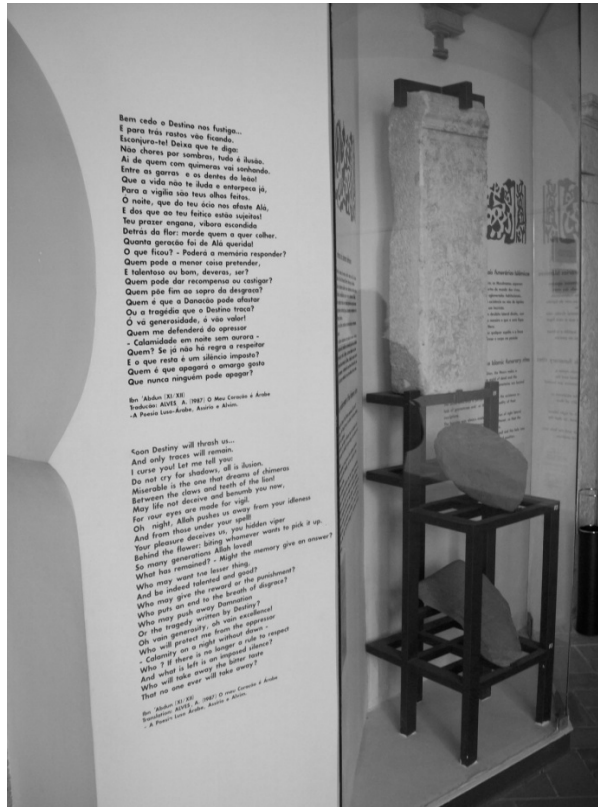 Bem cedo o Destino nos fustiga...
E para trás rastos vão ficando.
Esconjuro-te! Deixa que te diga:
Não chores por sombras, tudo é ilusão.
Ai de quem com quimeras vai sonhando.
Entre as garras e os dentes do leão!
Que a vida não te iluda e entorpeça já,
Para a vigília são teus olhos feitos.
Ó noite, que do teu ócio nos afaste Alá,
E dos que ao teu feitiço estão sujeitos!
Teu prazer engana, víbora escondida
Detrás da flor: morde quem a quer colher.
Quanta geração foi de Alá querida!
O que ficou? - Poderá a memória responder?
Quem pode a menor coisa pretender,
E talentoso ou bom, deveras, ser?
Quem pode dar recompensa ou castigar?
Quem põe fim ao sopro da desgraça?
Quem é que a Danação pode afastar
Ou a tragédia que o Destino traça?
Ó vã generosidade, ó vão valor!
Quem me defenderá do opressor
- Calamidade em noite sem aurora -
Quem? Se já não há regra a respeitar
E o que resta é um silêncio imposto?
Quem é que apagará o amargo gosto
Que nunca ninguém pode apagar?
Ibn 'Abdun (XI/XII)
Tradução: ALVES, A. (1987) O Meu Coração é Árabe
-A Poesia Luso-Árabe, Assírio e Alvim.
Soon Destiny will thrash us...
And only traces will remain.
I curse you! Let me tell you:
Do not cry for shadows, all is ilusion.
Miserable is the one that dreams of chimeras
Between the claws and teeth of the lion!
May life not deceive and benumb you now,
For your eyes are made for vigil.
Oh night, Allah pushes us away from your idleness
And from those under your spell!
Your pleasure deceives us, you hidden viper
Behind the flower: biting whomever wants to pick it up.
So many generations Allah loved!
What has remained? - Might the memory give an answer?
Who may want the lesser thing,
And be indeed talented and good?
Who may give the reward or the punishment?
Who puts an end to the breath of disgrace?
Who may push away Damnation
Or the tragedy written by Destiny?
Oh vain generosity, oh vain excellence!
Who will protect me from the oppressor
- Calamity on a night without dawn -
Who ? If there is no longer a rule to respect
And what is left is an imposed silence?
Who will take away the bitter taste
That no one ever will take away?
Ibn 'Abdun (XI/XII)
Translation: ALVES, A. (1987) O meu Coração é Árabe
- A Poesia Luso Árabe, Assírio e Alvim.